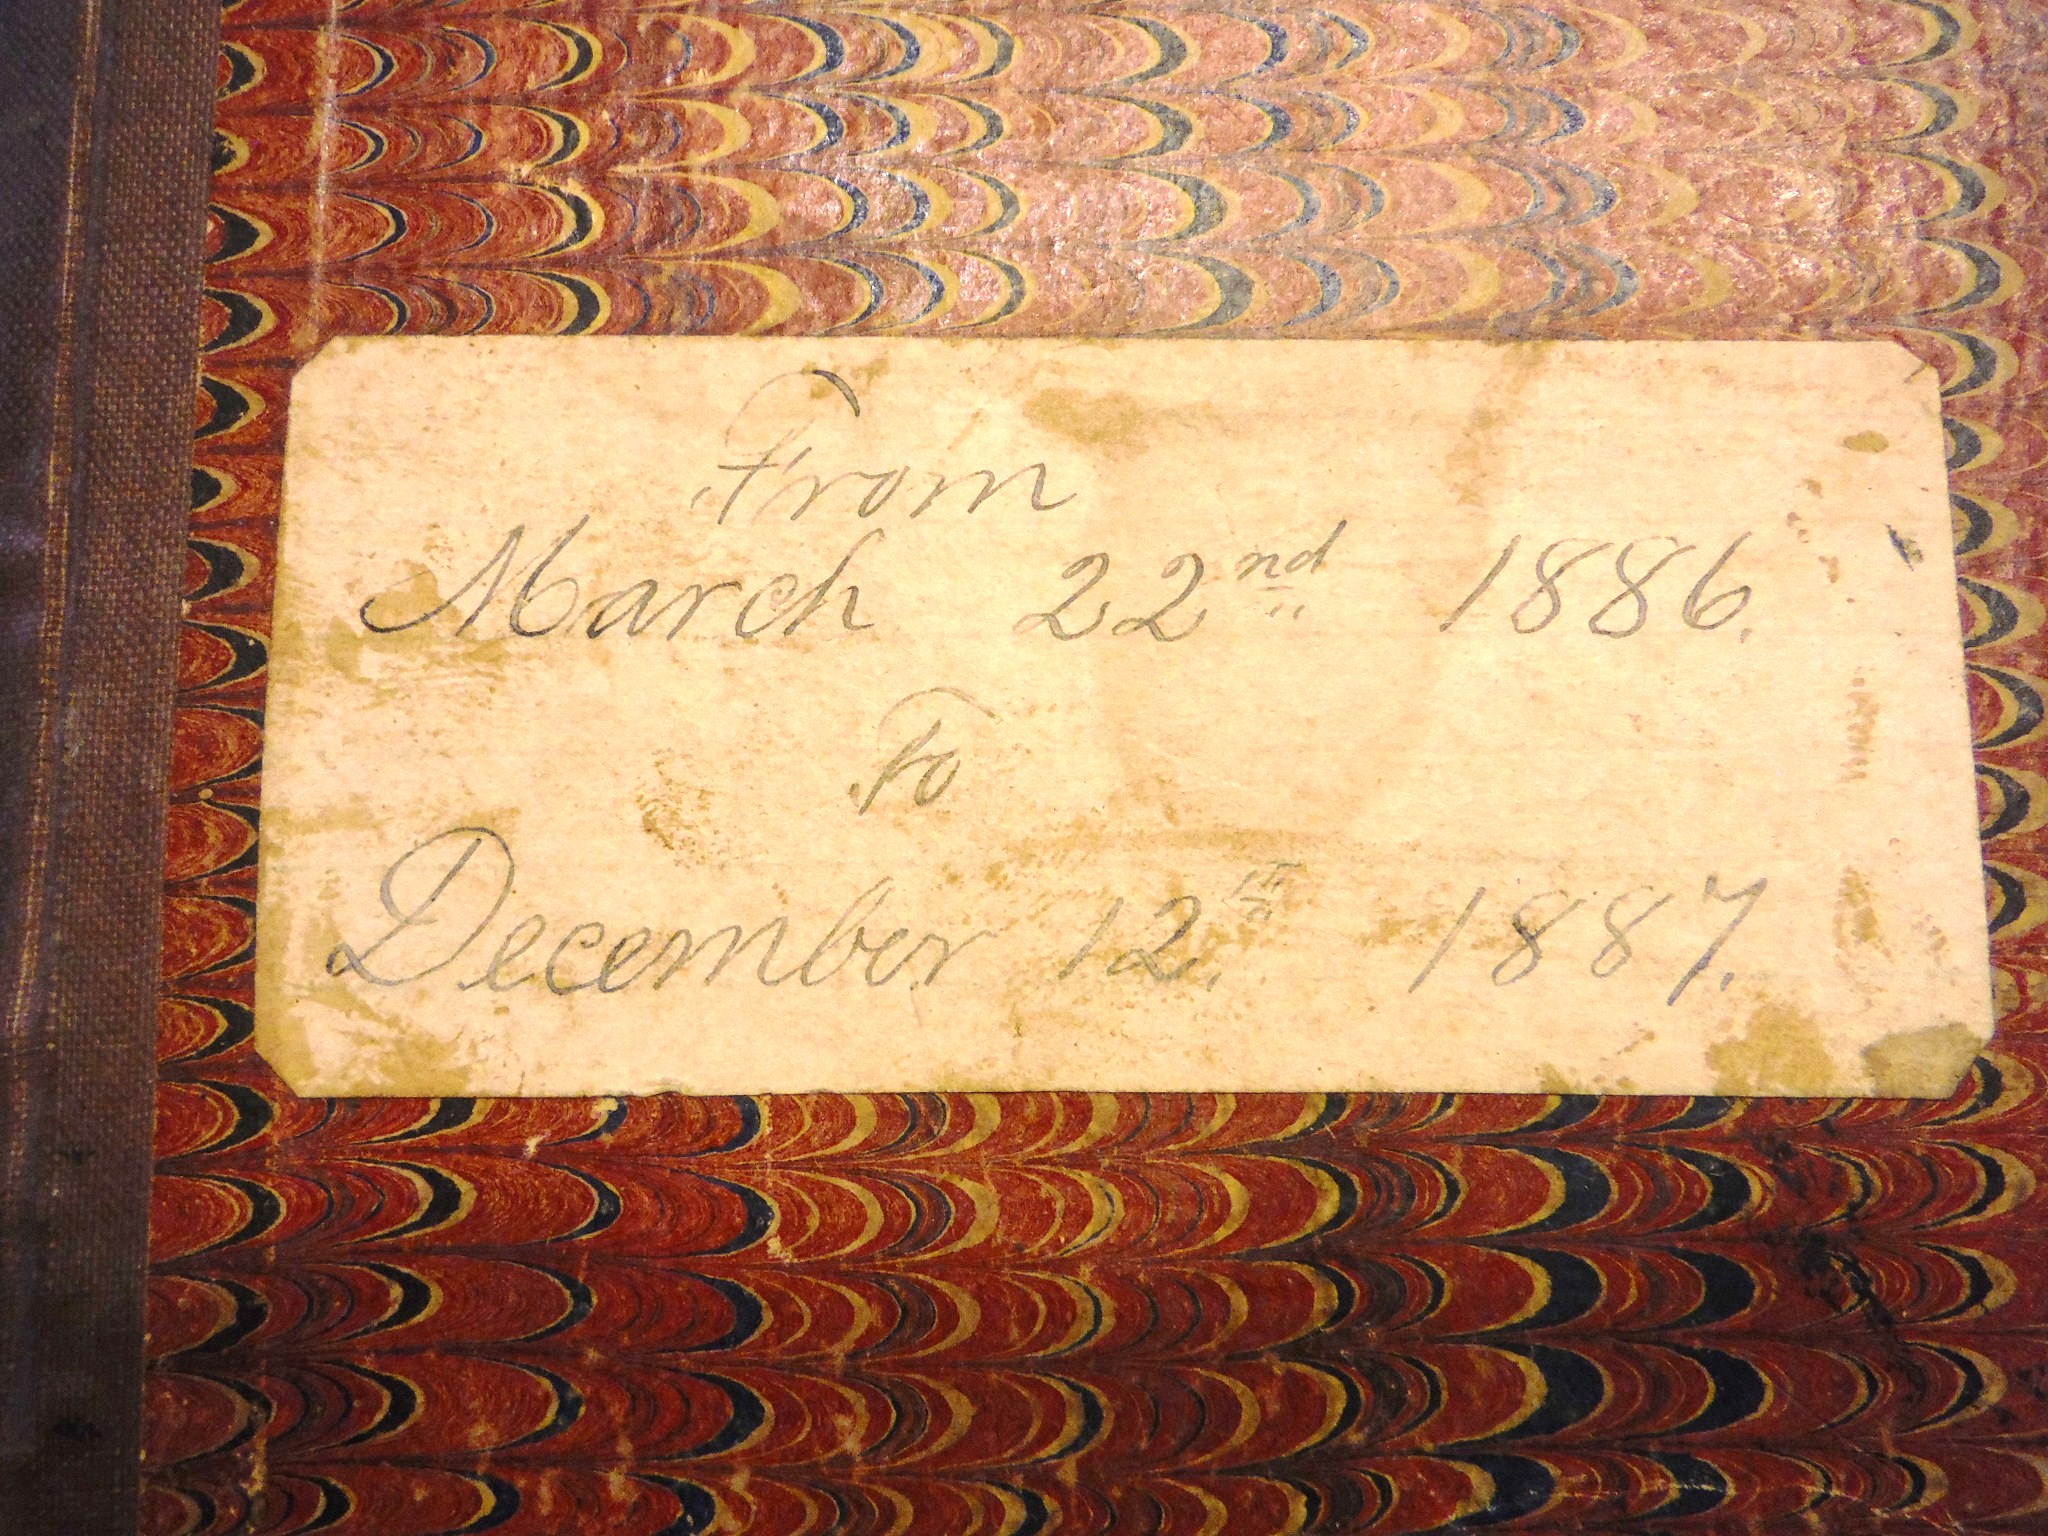 From
March 22nd 1886.
To
December 12.th 1887.